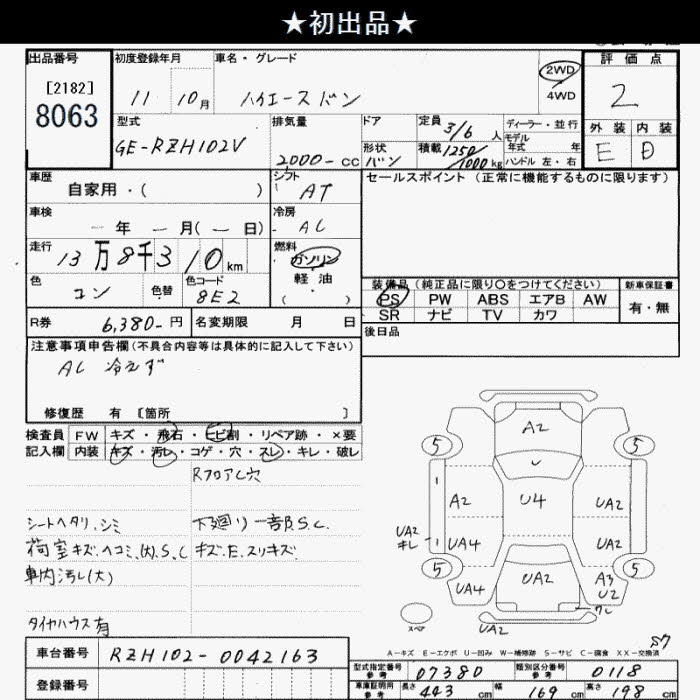 ★初出品★
出品番号 初度登録年月 車名・グレード 評価点
[2182]
8063
11 10月 ハイエースバン 2WD 4WD 2
型式 排気量 ドア 定員 3/6人 ディーラー・並行
GE-RZH102V 2000-cc 形状 バン 積載 1250/1000kg モデル年式 年 ハンドル 左・右
外装 内装
E D
車歴 シフト セールスポイント(正常に機能するものに限ります)
自家用・( ) AT
車検 冷房
一年 一月(一日) AC
走行 燃料
13万8千310km ガソリン
軽油
( )
色 色替 色コード
コン 8E2
装備品(純正品に限り○をつけてください) 新車保証書
PS PW ABS エアB AW 有・無
SR ナビ TV カワ
R券 6,380-円 名変期限 月 日
後日品
注意事項申告欄(不具合内容等は具体的に記入して下さい)
AC 冷えず
修復歴 有 [箇所 ]
検査員 FW キズ・飛石・ヒビ割・リペア跡・×要
記入欄 内装 キズ・汚レ・コゲ・穴・スレ・キレ・破レ
RフロアC穴
シートヘタリ、シミ 下廻り一部S.C.
荷室キズ、ヘコミ、(大)、S、C キズ.E.スリキズ
車内汚レ(大)
タイヤハウス有
A2
5 5
U4
A2 UA2
UA2 キレ
UA4 UA2
5 5
UA4 UA2 A3 U2
ワレ
スペア UA2
S7
A-キズ E-エクボ U-凹み W-補修跡 S-サビ C-腐食 XX-交換済
車台番号 RZH102-0042163
登録番号
型式指定番号 07380 類別区分番号 0118
車庫証明用参考 長さ 443cm 幅 169cm 高さ 198cm